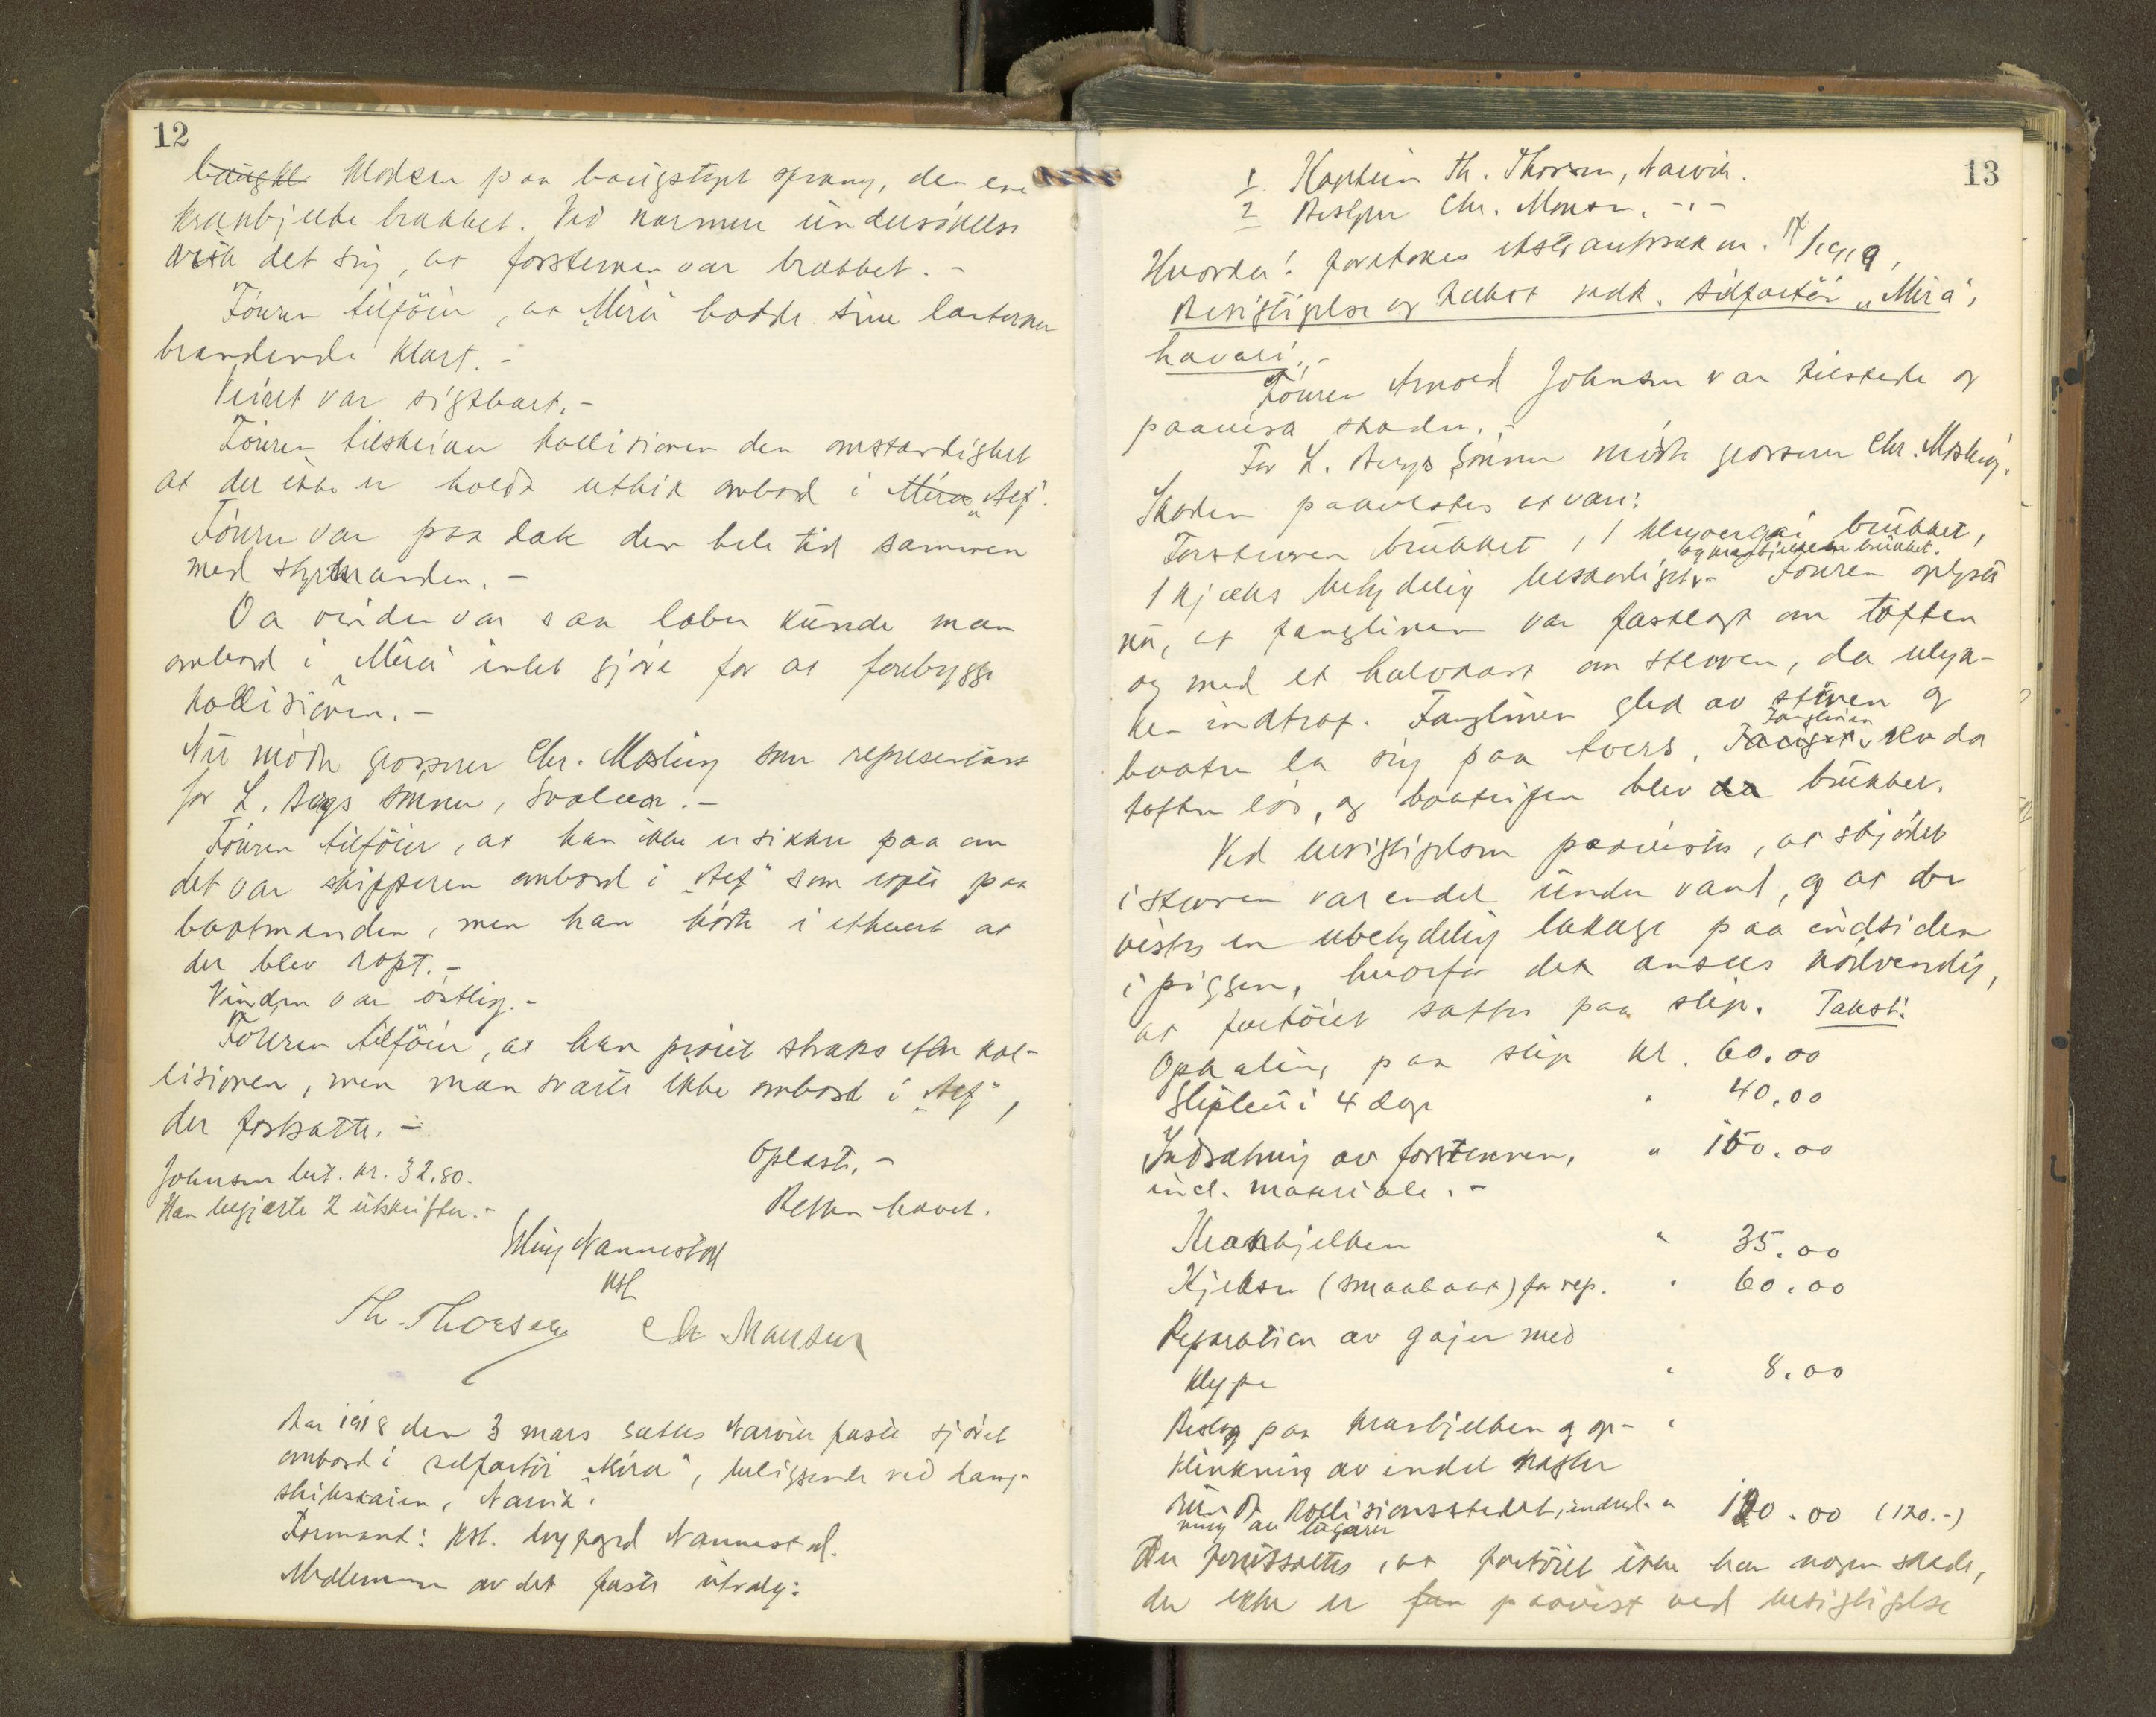 12
Klodsen paa baugstopt sprang, den ene
kranbjelke brækket. Ved nærmere undersökelse
viste det sig, at forstevnen var brækket. -
Föreren tilföier, at "Mira" hadde sine lanterner
brændende klart. -
Veiret var sigtbart. -
Föreren tilskriver kollisionen den omstændighet
at der ikke er holdt utkik ombord i Mira "Alf".
Föreren var paa dæk den hele tid sammen
med styrmanden. -
Da vinden var saa laber kunde man
ombord i "Mira" intet gjöre for at forebygge
kollisionen. -
Nu mötte grosserer Chr. Mosling som representant
for L. Bergs sönner, Svolvær. -
Föreren tilföier, at han ikke er sikker paa om
det var skipperen ombord i "Alf" som ropte paa
baatmanden, men han hörte i ethvert at
der blev ropt. -
Vinden var östlig. -
Föreren tilföier, at han praiet straks efter kol-
lisionen, men man svarte ikke ombord i "Alf",
der fortsatte. -
Oplæst. -
Johnsen bet. kr. 32.80.
Han begjærte 2 utskrifter. -
Retten hævet.
Nannestad
Kst.
Th. Thorsen Chr Monsen
Aar 1918 den 3 mars sattes Narvik faste sjöret
ombord i seilfartöi "Mira", beliggende ved damp-
skibskaien, Narvik.
Formand: Kst. byfogd Nannestad.
Medlemmer av det faste utvalg:
13
1 Kaptein Th. Thorsen, Narvik.
2 Chr. Monsen, -"-
Hvorda! foretokes ekstrautrækn. 14/1919,
Besigtigelse og takst vedk. seilfartöi "Mira"s
havari. -
Föreren Arnold Johnsen var tilstede og
paaviste skaden. -
For L. Bergs Sönner mötte grosserer Chr. Mosling.
Skaden paavistes at være:
Forstevnen brukket, 1 klyvergai brukket,
og kranbjelken brukket.
1 kjæks betydelig beskadiget. - Föreren oplyste
nu, at fanglinen var fastlagt om toften
og med et halvkast om stevnen, da ulyk-
ken indtraf. Fanglinen gled av stevnen og
Fanglinen
baaten la sig paa tvers. rev da
toften lös, og baatripen blev da brukket.
Ved besigtigelsen paavistes, at skjötet
i stevnen var endel under vand, og at der
vistes en ubetydelig lækage paa indsiden
i piggen, hvorfor det ansees nödvendig,
at fartöiet sattes paa slip. Takst:
Ophaling paa slip kr. 60.00
Slipleie i 4 dage " 40.00
Indsætning av forstevnen, " 150.00
incl. materiale. -
Kranbjelken " 35.00
Kjeksen (smaabaat) for rep. " 60.00
Reparation av gajer med
klype " 8.00
Beslag paa kranbjelken og op- "
klinkning av endel nagler
rundt kollisionsstedet, indsæt- " 120.00 (120.-)
ning av lugarer
Der forutsættes, at fartöiet ikke har nogen skade,
der ikke er fun paavist ved besigtigelse